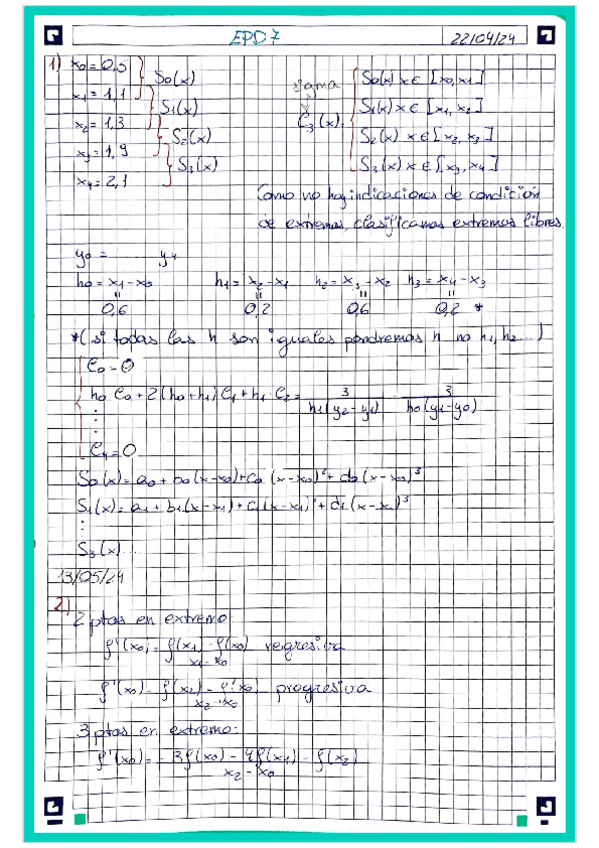 EPD 7
22/04/24
1) x0 = 0,5
x1 = 1,1
x2 = 1,3
x3 = 1,9
x4 = 2,1
S0(x)
S1(x)
S2(x)
S3(x)
sigma
C3(x)
S0(x) x ∈ [x0, x1]
S1(x) x ∈ [x1, x2]
S2(x) x ∈ [x2, x3]
S3(x) x ∈ [x3, x4]
Como no hay indicaciones de condición
de extremos, clasificamos extremos libres.
y0 = y4
h0 = x1 - x0 h1 = x2 - x1 h2 = x3 - x2 h3 = x4 - x3
0,6 0,2 0,6 0,2 *
*( si todas las h son iguales pondremos h no h1, h2 ...)
C0 = 0
h0 C0 + 2(h0 + h1) C1 + h1 C2 = 3 / h1(y2 - y1) 3 / h0(y1 - y0)
⋮
C4 = 0
S0(x) = a0 + b0(x-x0) + c0 (x-x0)² + d0 (x-x0)³
S1(x) = a1 + b1(x-x1) + c1(x-x1)² + d1(x-x1)³
⋮
S3(x)...
13/05/24
2)
2 ptos en extremo
f'(x0) = f(x1) - f(x0) / x1 - x0 regresiva
f'(x0) = f(x2) - f(x0) / x2 - x0 progresiva
3 ptos en extremo:
f'(x0) = - 3f(x0) - 4f(x1) - f(x2) / x2 - x0